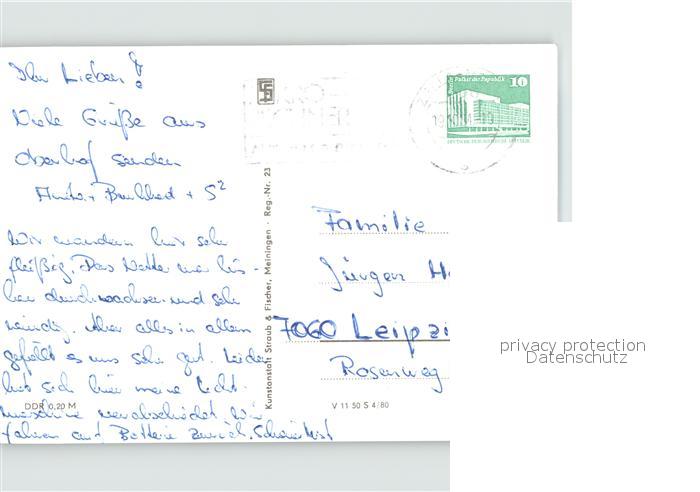 Ihr Lieben!
Viele Grüße aus
Oberhof senden
Anita, Burkhard + S²
Wir wandern hier sehr
fleißig. Das Wetter war bis-
her durchwachsen und sehr
windig. Aber alles in allem
gefällt es uns sehr gut. Leider
hat sich hier meine Licht-
maschine verabschiedet. Wir
fahren auf Batterie zurück.
DDR 0,20 M
Kunstanstalt Straub & Fischer, Meiningen · Reg.-Nr. 23
Berlin Palast der Republik
10
DEUTSCHE DEMOKRATISCHE REPUBLIK
Familie
Jürgen H
7060 Leipzi
Rosenweg
V 11 50 S 4/80
privacy protection
Datenschutz